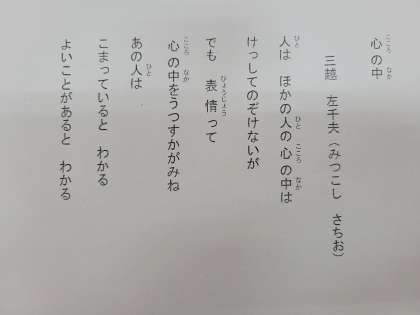 心の中
三越　左千夫（みつこし　さちお）
人は　ほかの人の心の中は
けっしてのぞけないが
でも　表情って
心の中をうつすかがみね
あの人は
こまっていると　わかる
よいことがあると　わかる